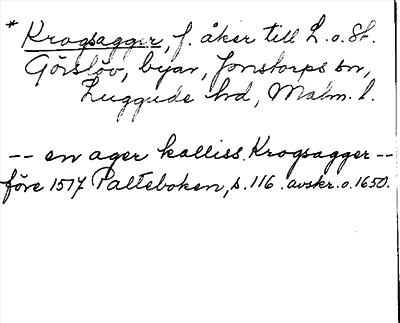 * Krogsagger, f. åker till L. o. St.
Görslöv, byar, Jonstorps sn,
Luggude hd, Malm. l.
-- en ager kalliss Krogsagger --
före 1517 Palteboken, s. 116. avskr. o. 1650.